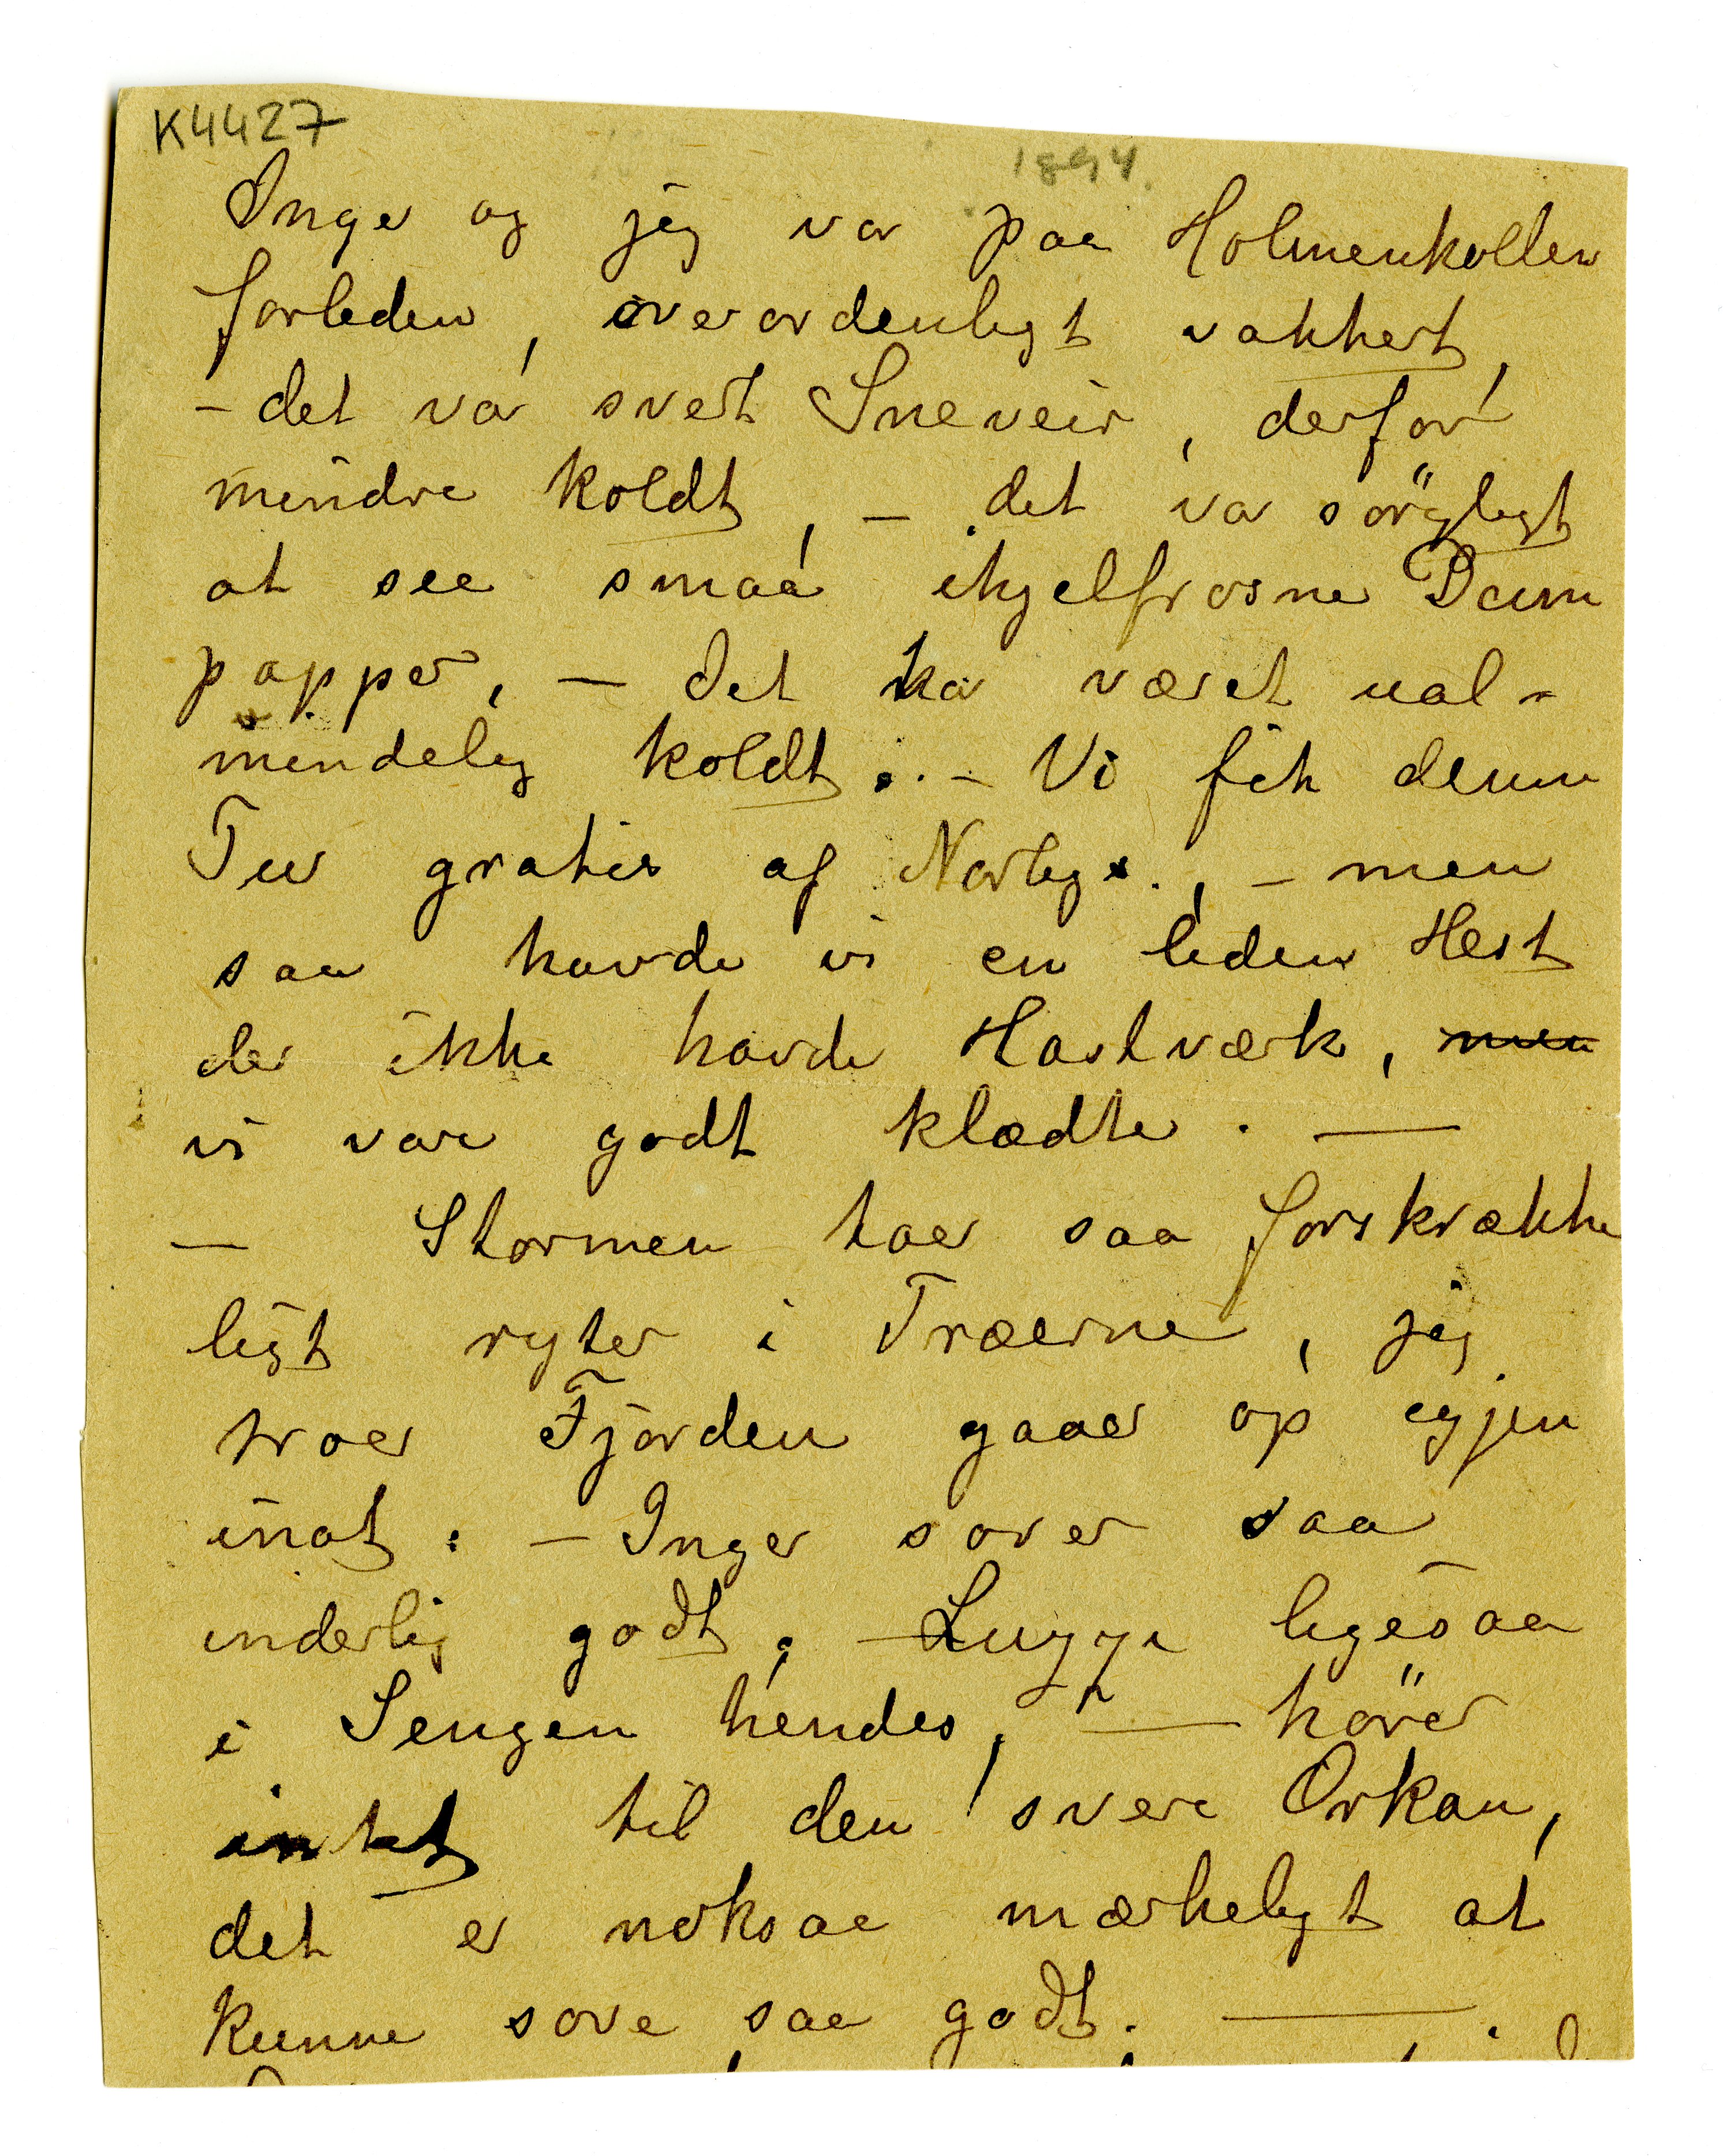 K4427
1894.
Inger og jeg var paa Holmenkollen
forleden, overordenligt vakkert,
- det var svert Sneveir, derfor
mindre koldt, – det var sörgligt
at see smaa ihjelfrosne Dom
papper, – det ha været ual-
mindelig koldt. – Vi fik denne
Tur gratis af Norbye., – men
saa havde vi en leden Hest
der ikke havde Hastværk, men
vi vare godt klædte. —
— Stormen taer saa forskrække
ligt ryter i Træerne, jeg
troer Fjorden gaaer op igjen
inat. – Inger sover saa
inderlig godt, – Luzzi ligesaa
i Sengen hendes, — hörer
intet til den svere Orkan,
det er noksaa mærkeligt at
kunne sove saa godt. —